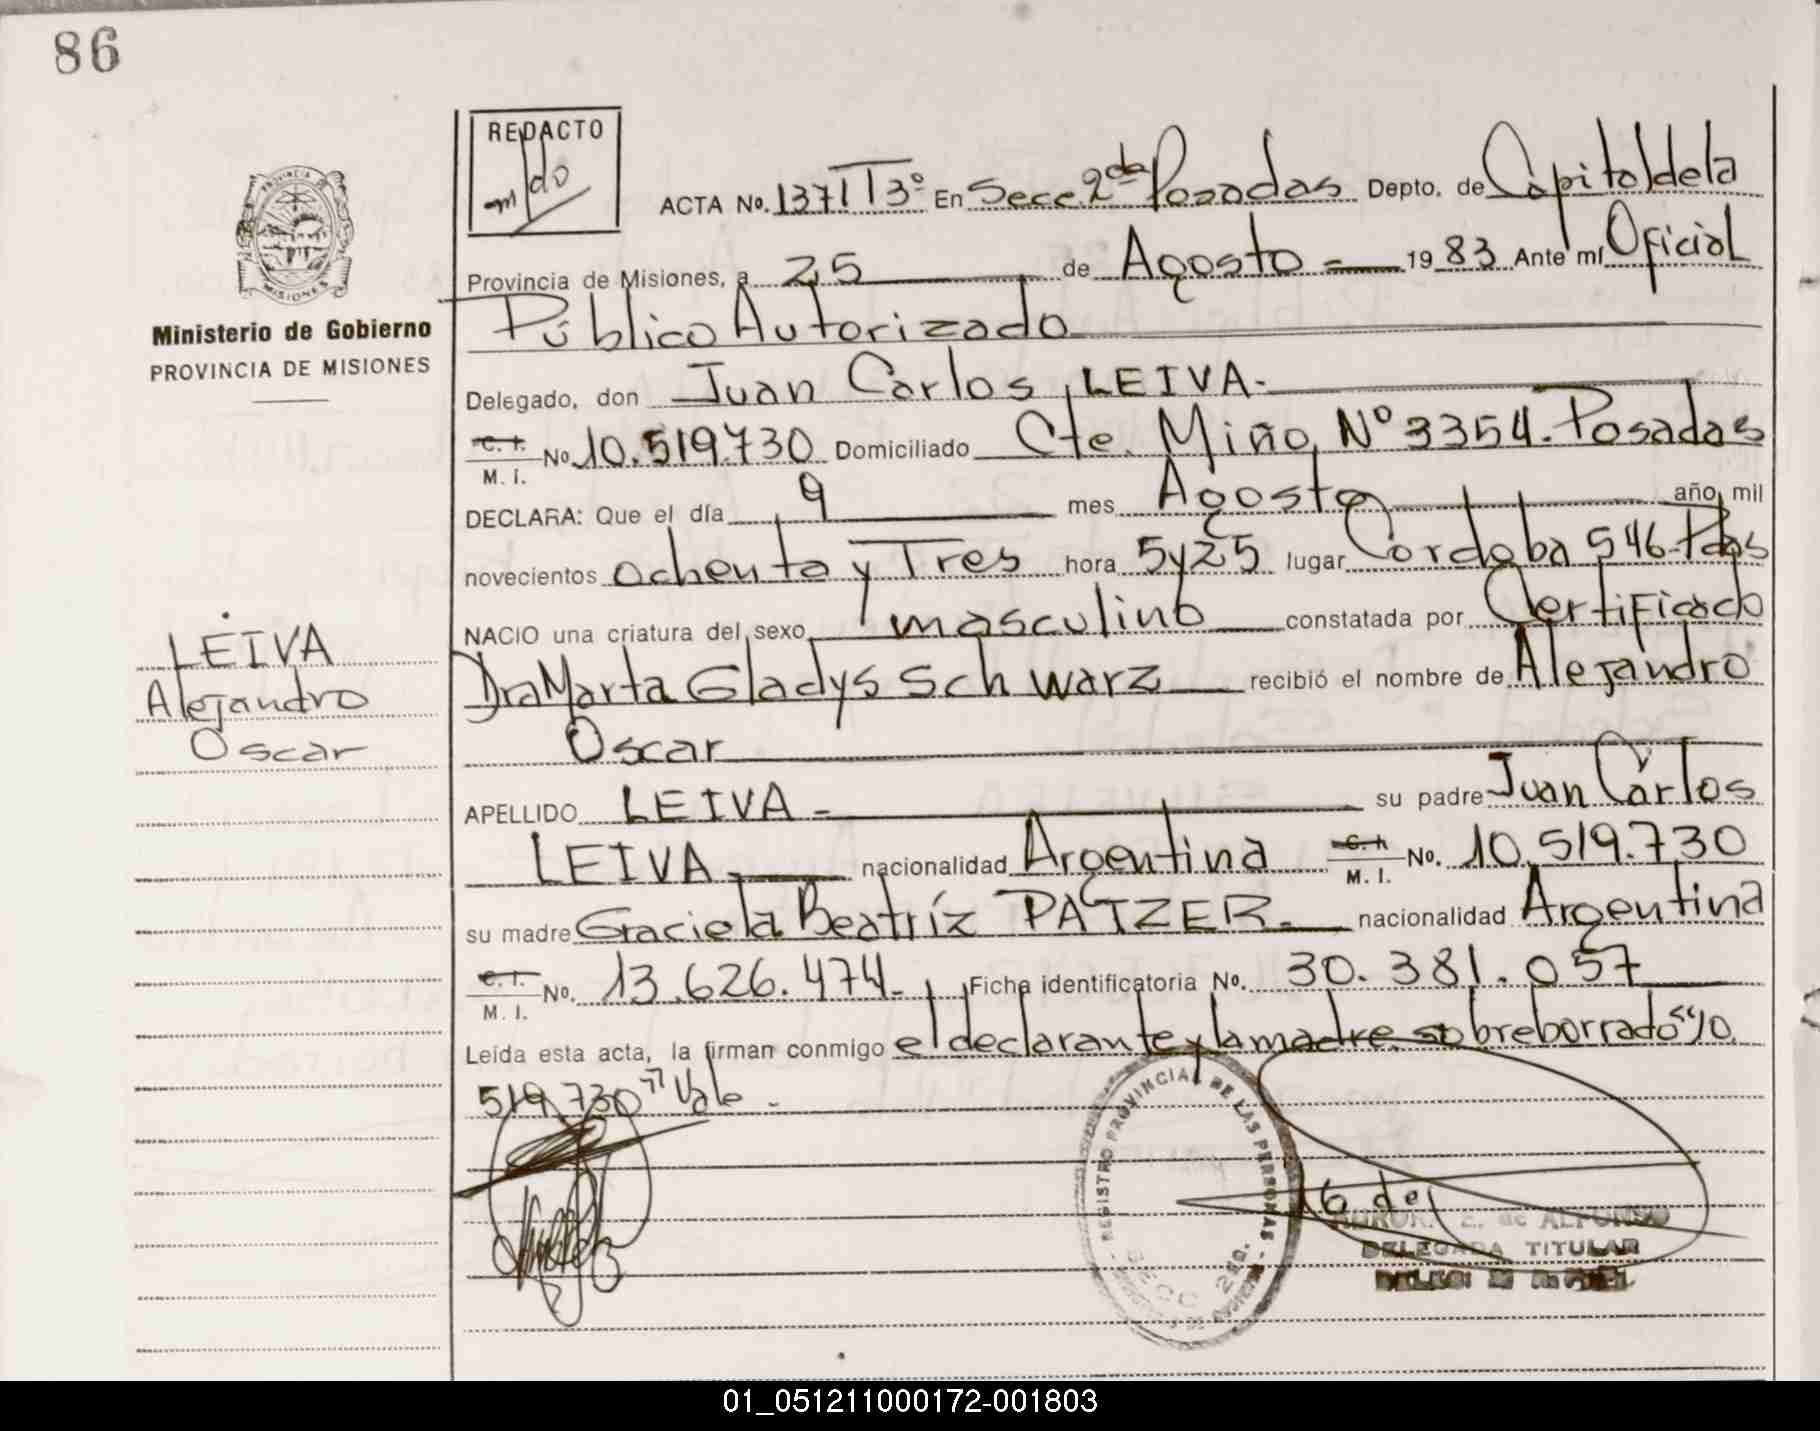 86
REDACTO
ACTA No. 1371 T 3º En Secc. 2da Posadas Depto. de Capital de la
Provincia de Misiones, a 25 de Agosto - 1983 Ante mi Oficial
Público Autorizado
PROVINCIA DE
MISIONES
Ministerio de Gobierno
PROVINCIA DE MISIONES
Delegado, don Juan Carlos LEIVA.-
C. I.
M. I. No. 10.519.730 Domiciliado Cte. Miño Nº 3354. Posadas
DECLARA: Que el día 9 mes Agosto año mil
novecientos ochenta y Tres hora 5y25 lugar Cordoba 546-Pdas
NACIO una criatura del sexo masculino constatada por Certificado
Dra Marta Gladys Schwarz recibió el nombre de Alejandro
Oscar
LEIVA
Alejandro
Oscar
APELLIDO LEIVA - su padre Juan Carlos
LEIVA - nacionalidad Argentina C. I.
M. I. No. 10.519.730
su madre Graciela Beatríz PATZER.- nacionalidad Argentina
C. I.
M. I. No. 13.626.474.- Ficha identificatoria No. 30.381.057
Leída esta acta, la firman conmigo el declarante y la madre. sobreborrado "10.
519.730" Vale -
REGISTRO PROVINCIAL DE LAS PERSONAS
SECC 2da.
E. de ALFONSO
DELEGADA TITULAR
01_051211000172-001803